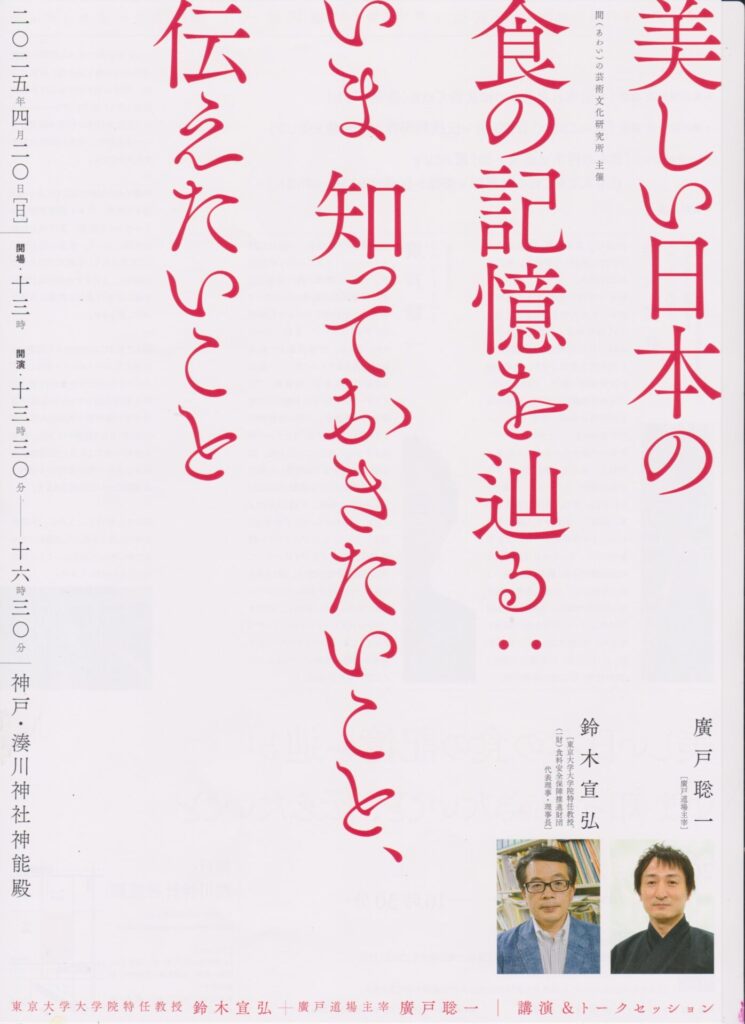 美しい日本の
間(あわい)の芸術文化研究所 主催
食の記憶を辿る:
いま 知っておきたいこと、
伝えたいこと
二〇二五年四月二〇日[日]
開場・十三時 開演・十三時三〇分――十六時三〇分
神戸・湊川神社神能殿
廣戸聡一
[廣戸道場主宰]
鈴木宣弘
[東京大学大学院特任教授、
(一財)食料安全保障推進財団
代表理事・理事長]
東京大学大学院特任教授 鈴木宣弘+廣戸道場主宰 廣戸聡一 | 講演&トークセッション